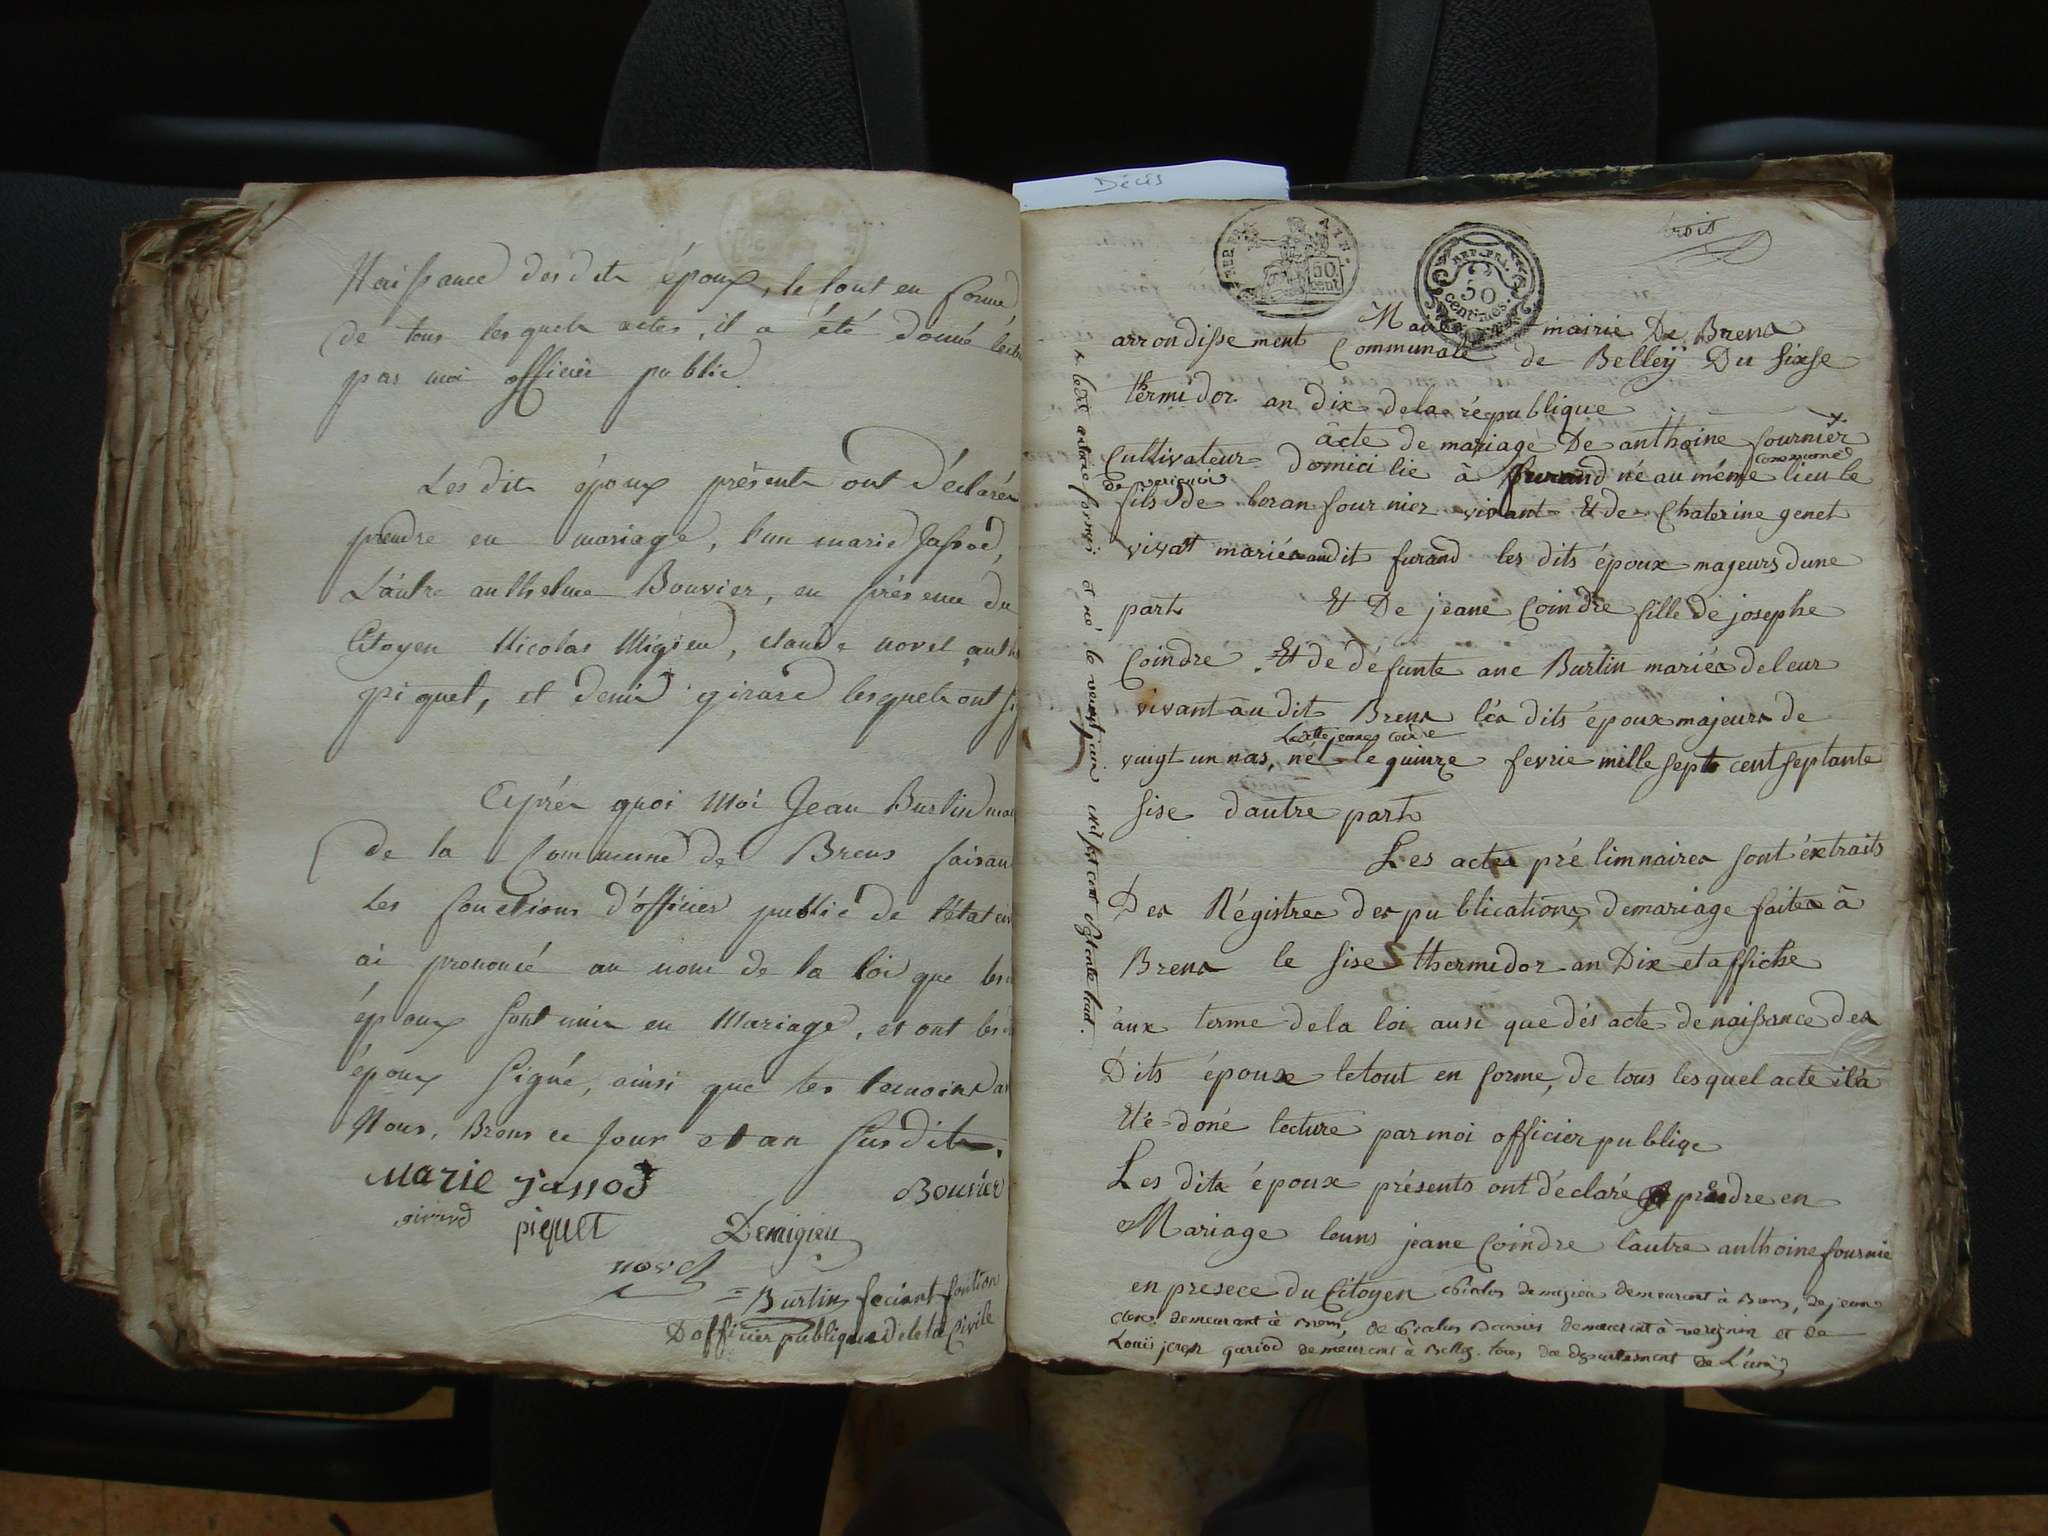 Naissance desdits époux, le tout en forme,
de tous lesquels actes, il a été donné lectu
par moi officier public.
Les dits époux présents ont déclaré
prendre en mariage, l'un marie Jassod,
L'autre anthelme Bouvier, en présence du
Citoyen Nicolas Migieu, claude novel, anth
piquet, et denis girard lesquels ont si
Après quoi Moi Jean Burtin mai
de la Commune de Brens faisan
les fonctions d'officier public de l'état civ
ai prononcé au nom de la loi que les
époux sont unis en Mariage, et ont les
époux signé, ainsi que les temoins av
Nous, Brens ce jour et an susdits.
Marie jassod
Bouvier
girard piquet Demigieu
novel
= Burtin feciant fontion
D officier publique de leta Civile
Décès
trois
REP. FRA.
50 cent
REP. FRA.
50 centimes.
mairie De Brens
arrondissement Communale de Belley Du sixse
thermidor an dix de la république
acte de mariage De anthoine fournier x
Cultivateur domicilie à furand né au même lieu le
commune
de
fils de loran fournier vivant Et de Chaterine genet
vivat mariés audit furand les dits époux mageurs dune
part Et De jeane Coindre fille de josephe
Coindre. Et de défunte ane Burtin mariés de leur
vivant au dit Brens lés dits époux majeurs de
Ladite jeanne coindre
vingt un nas, né le quinze fevrie mille sept cent septante
sise dautre part
Les actes prélimnaires sont éxtraits
Des Régistres des publications demariage faites à
Brens le sise thermidor an Dix et affiche
aux terme de la loi ausi que dés acte de naissance des
Dits époux le tout en forme, de tous les quel acte il a
Eté doné lecture par moi officier publiqe
Les dits époux présents ont déclaré prendre en
Mariage leuns jeane Coindre lautre anthoine fournie
en presece du Citoyen Nicolas demigieu demeurant à Brens, de jean
demeurant à Brens, de Nicolas demeurant à et de
Louis joseph demeurant à Belley. tous du departement de L'ain
x et né le vingt juin mil sept cent septente huit.